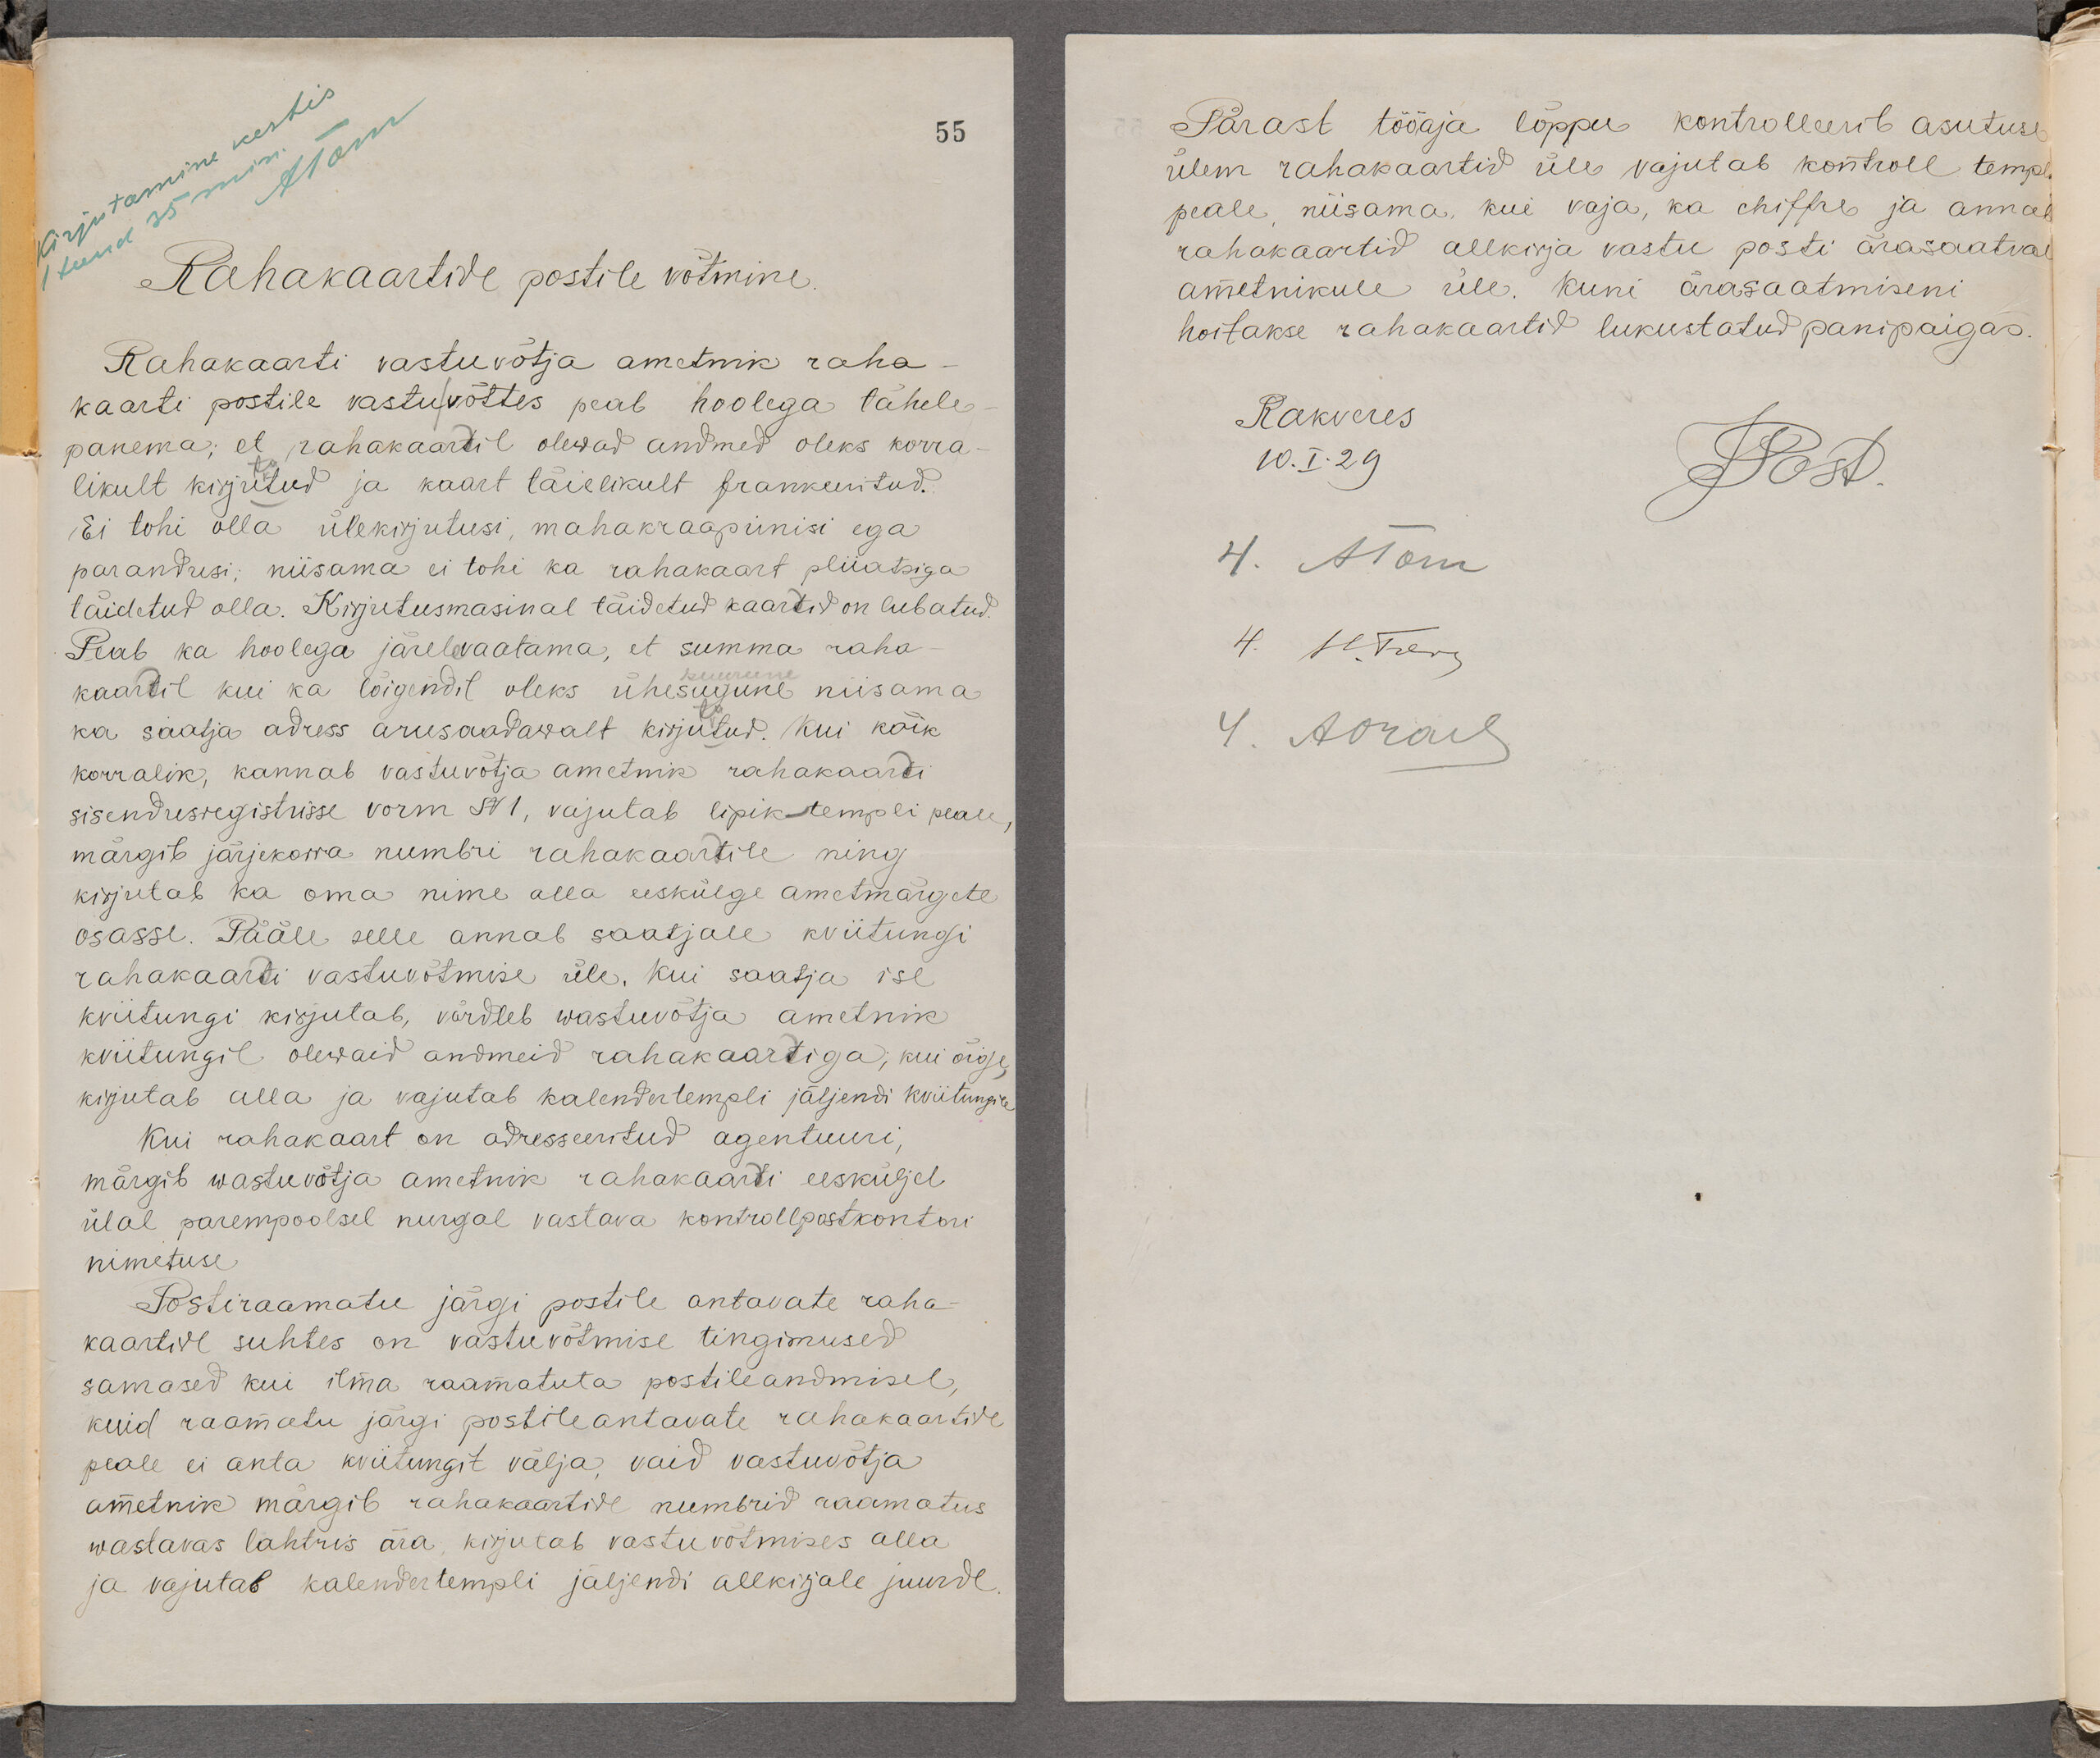 Kirjutamine kestis
1 tund 35 min.
ATom
55
Rahakaartide postile võtmine.
Rahakaarti vastuvõtja ametnik raha-
kaarti postile vastu võttes peab hoolega tähele-
panema; et rahakaardil olewad andmed oleks korra-
likult kirjutatud ja kaart täielikult frankeeritud.
Ei tohi olla ülekirjutusi, mahakraapimisi ega
parandusi; niisama ei tohi ka rahakaart pliiatsiga
täidetud olla. Kirjutusmasinal täidetud kaartid on lubatud.
Peab ka hoolega järelevaatama, et summa raha-
suurune
kaardil kui ka lõigendil oleks ühesugune niisama
ka saatja adress arusaadawalt kirjutatud. Kui kõik
korralik, kannab vastuvõtja ametnik rahakaardi
sisendusregistrisse vorm № 1, vajutab lipik-templi peale,
märgib järjekorra numbri rahakaartile ning
kirjutab ka oma nime alla eeskülge ametmärgete
osasse. Pääle selle annab saatjale kviitungi
rahakaardi vastuvõtmise üle. Kui saatja ise
kviitungi kirjutab, võrdleb wastuvõtja ametnik
kviitungil olewaid andmeid rahakaartiga; kui õige,
kirjutab alla ja vajutab kalendertempli jäljendi kviitungile
Kui rahakaart on adresseeritud agentuuri,
märgib wastuvõtja ametnik rahakaardi eesküljel
ülal parempoolsel nurgal vastava kontrollpostkontori
nimetuse
Postiraamatu järgi postile antavate raha-
kaartide suhtes on vastuvõtmise tingimused
samased kui ilma raamatuta postileandmisel,
kuid raamatu järgi postileantavate rahakaartide
peale ei anta kviitungit välja, vaid vastuvõtja
ametnik märgib rahakaartide numbrid raamatus
wastavas lahtris ära, kirjutab vastuvõtmises alla
ja vajutab kalendertempli jäljendi allkirjale juurde.
Pärast tööaja lõppu kontrolleerib asutuse
ülem rahakaartid üle vajutab kontroll templ.
peale, niisama, kui vaja, ka chiffre ja annab
rahakaartid allkirja vastu posti ärasaatval
ametnikule üle. Kuni ärasaatmiseni
hoitakse rahakaartid lukustatud panipaigas.
Rakveres
10.I.29
Post.
4. ATom
4.
4.